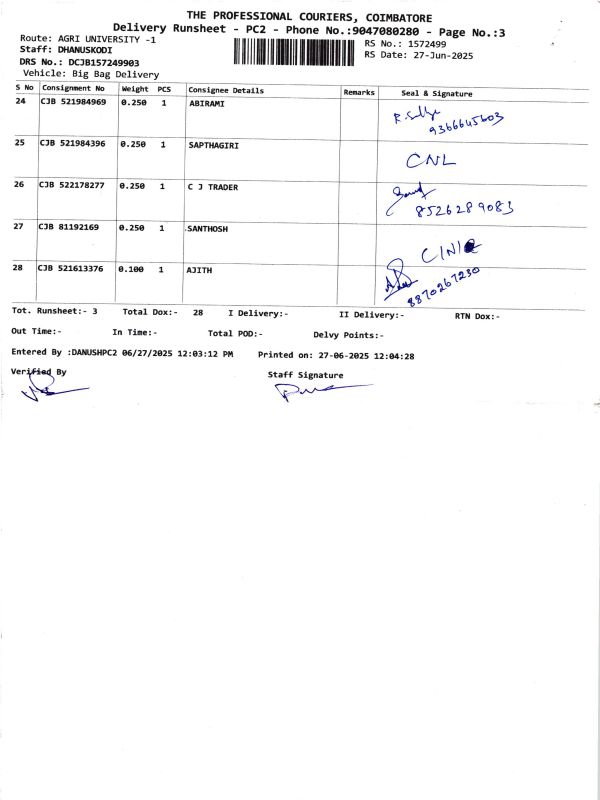 THE PROFESSIONAL COURIERS, COIMBATORE
Delivery Runsheet - PC2 - Phone No.:9047080280 - Page No.:3
Route: AGRI UNIVERSITY -1
RS No.: 1572499
Staff: DHANUSKODI
RS Date: 27-Jun-2025
DRS No.: DCJB157249903
Vehicle: Big Bag Delivery
S No Consignment No Weight PCS Consignee Details Remarks Seal & Signature
24 CJB 521984969 0.250 1 ABIRAMI
9366645603
25 CJB 521984396 0.250 1 SAPTHAGIRI CNL
26 CJB 522178277 0.250 1 C J TRADER
8526289083
27 CJB 81192169 0.250 1 .SANTHOSH
28 CJB 521613376 0.100 1 AJITH
8870267230
Tot. Runsheet:- 3 Total Dox:- 28 I Delivery:- II Delivery:- RTN Dox:-
Out Time:- In Time:- Total POD:- Delvy Points:-
Entered By :DANUSHPC2 06/27/2025 12:03:12 PM Printed on: 27-06-2025 12:04:28
Verified By Staff Signature